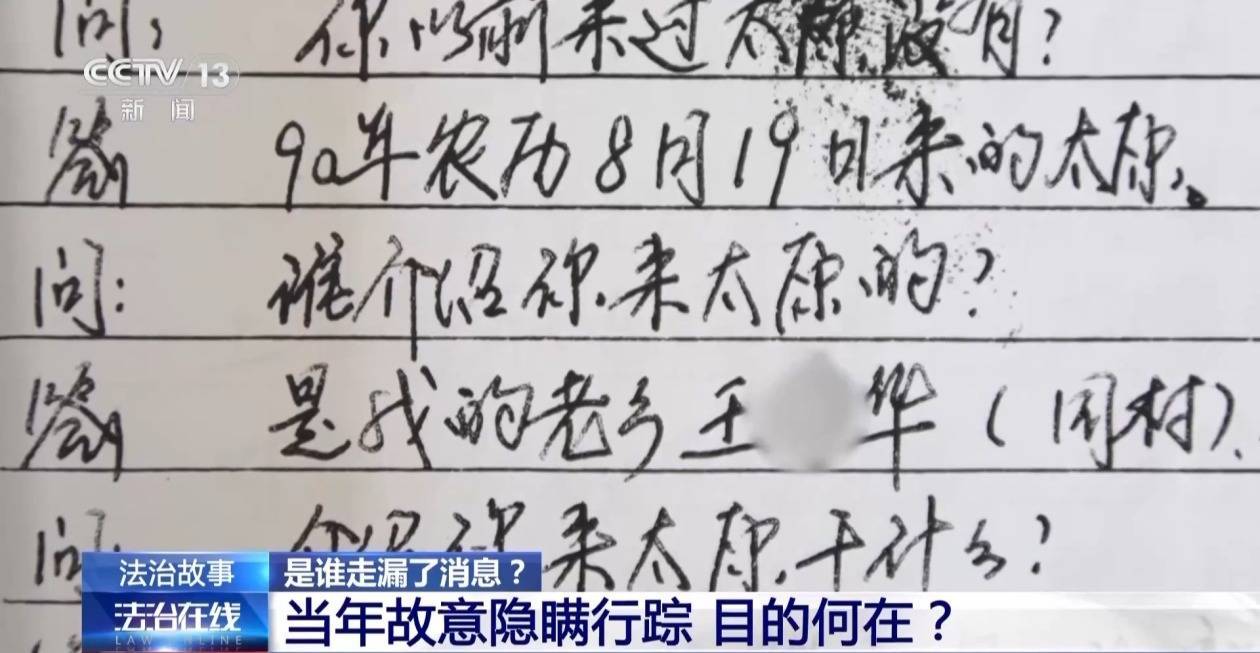 问：你以前来过太原没有？
CCTV 13
新闻
答 90年农历8月19日来的太原。
问：谁介绍你来太原的？
答 是我的老乡王 华（同村）.
问：介绍你来太原干什么？
法治故事 是谁走漏了消息？
法治在线 当年故意隐瞒行踪 目的何在？
LAW ONLINE